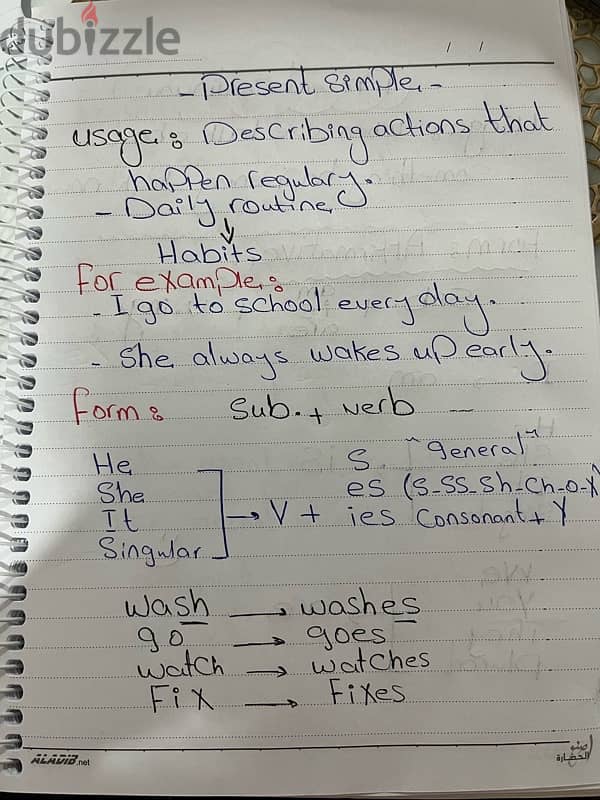 dubizzle
/ /
- Present simple -
usage : Describing actions that
happen regulary.
- Daily routine
Habits
for example :
- I go to school every day.
- She always wakes up early.
form : Sub. + verb
He
She
It
Singular
→ V +
s "general"
es (S-SS-Sh-Ch-O-X)
ies Consonant + Y
wash → washes
go → goes
watch → watches
Fix → Fixes
ALADIB.net
الحضارة